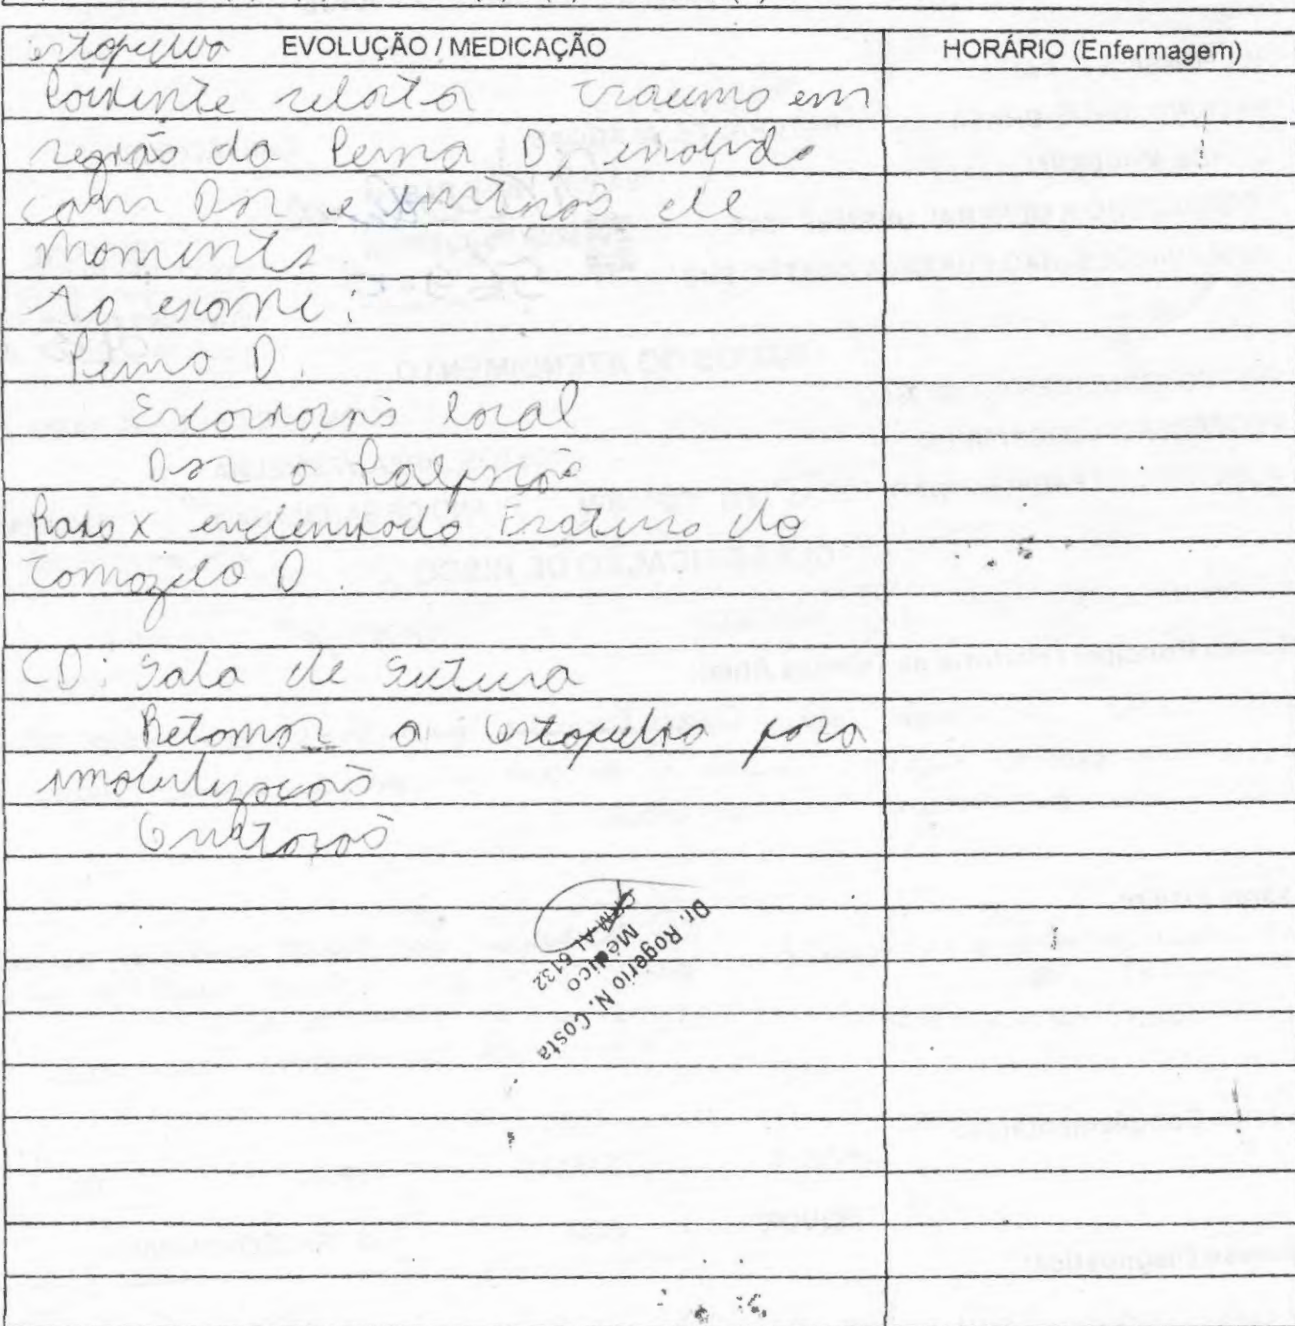 Ortopedia EVOLUÇÃO / MEDICAÇÃO HORÁRIO (Enfermagem)
Paciente relata trauma em
região da Perna D, evoluindo
com Dor e limitação de
movimento.
Ao exame:
Perna D.
Escoriação local
Dor à Palpação
Raio X evidenciado Fratura do
Tornozelo D.
CD: Sala de Sutura
Retornar a Ortopedia para
imobilização
Orientação
Dr. Rogerio N. Costa
Médico
CRM AL 6132